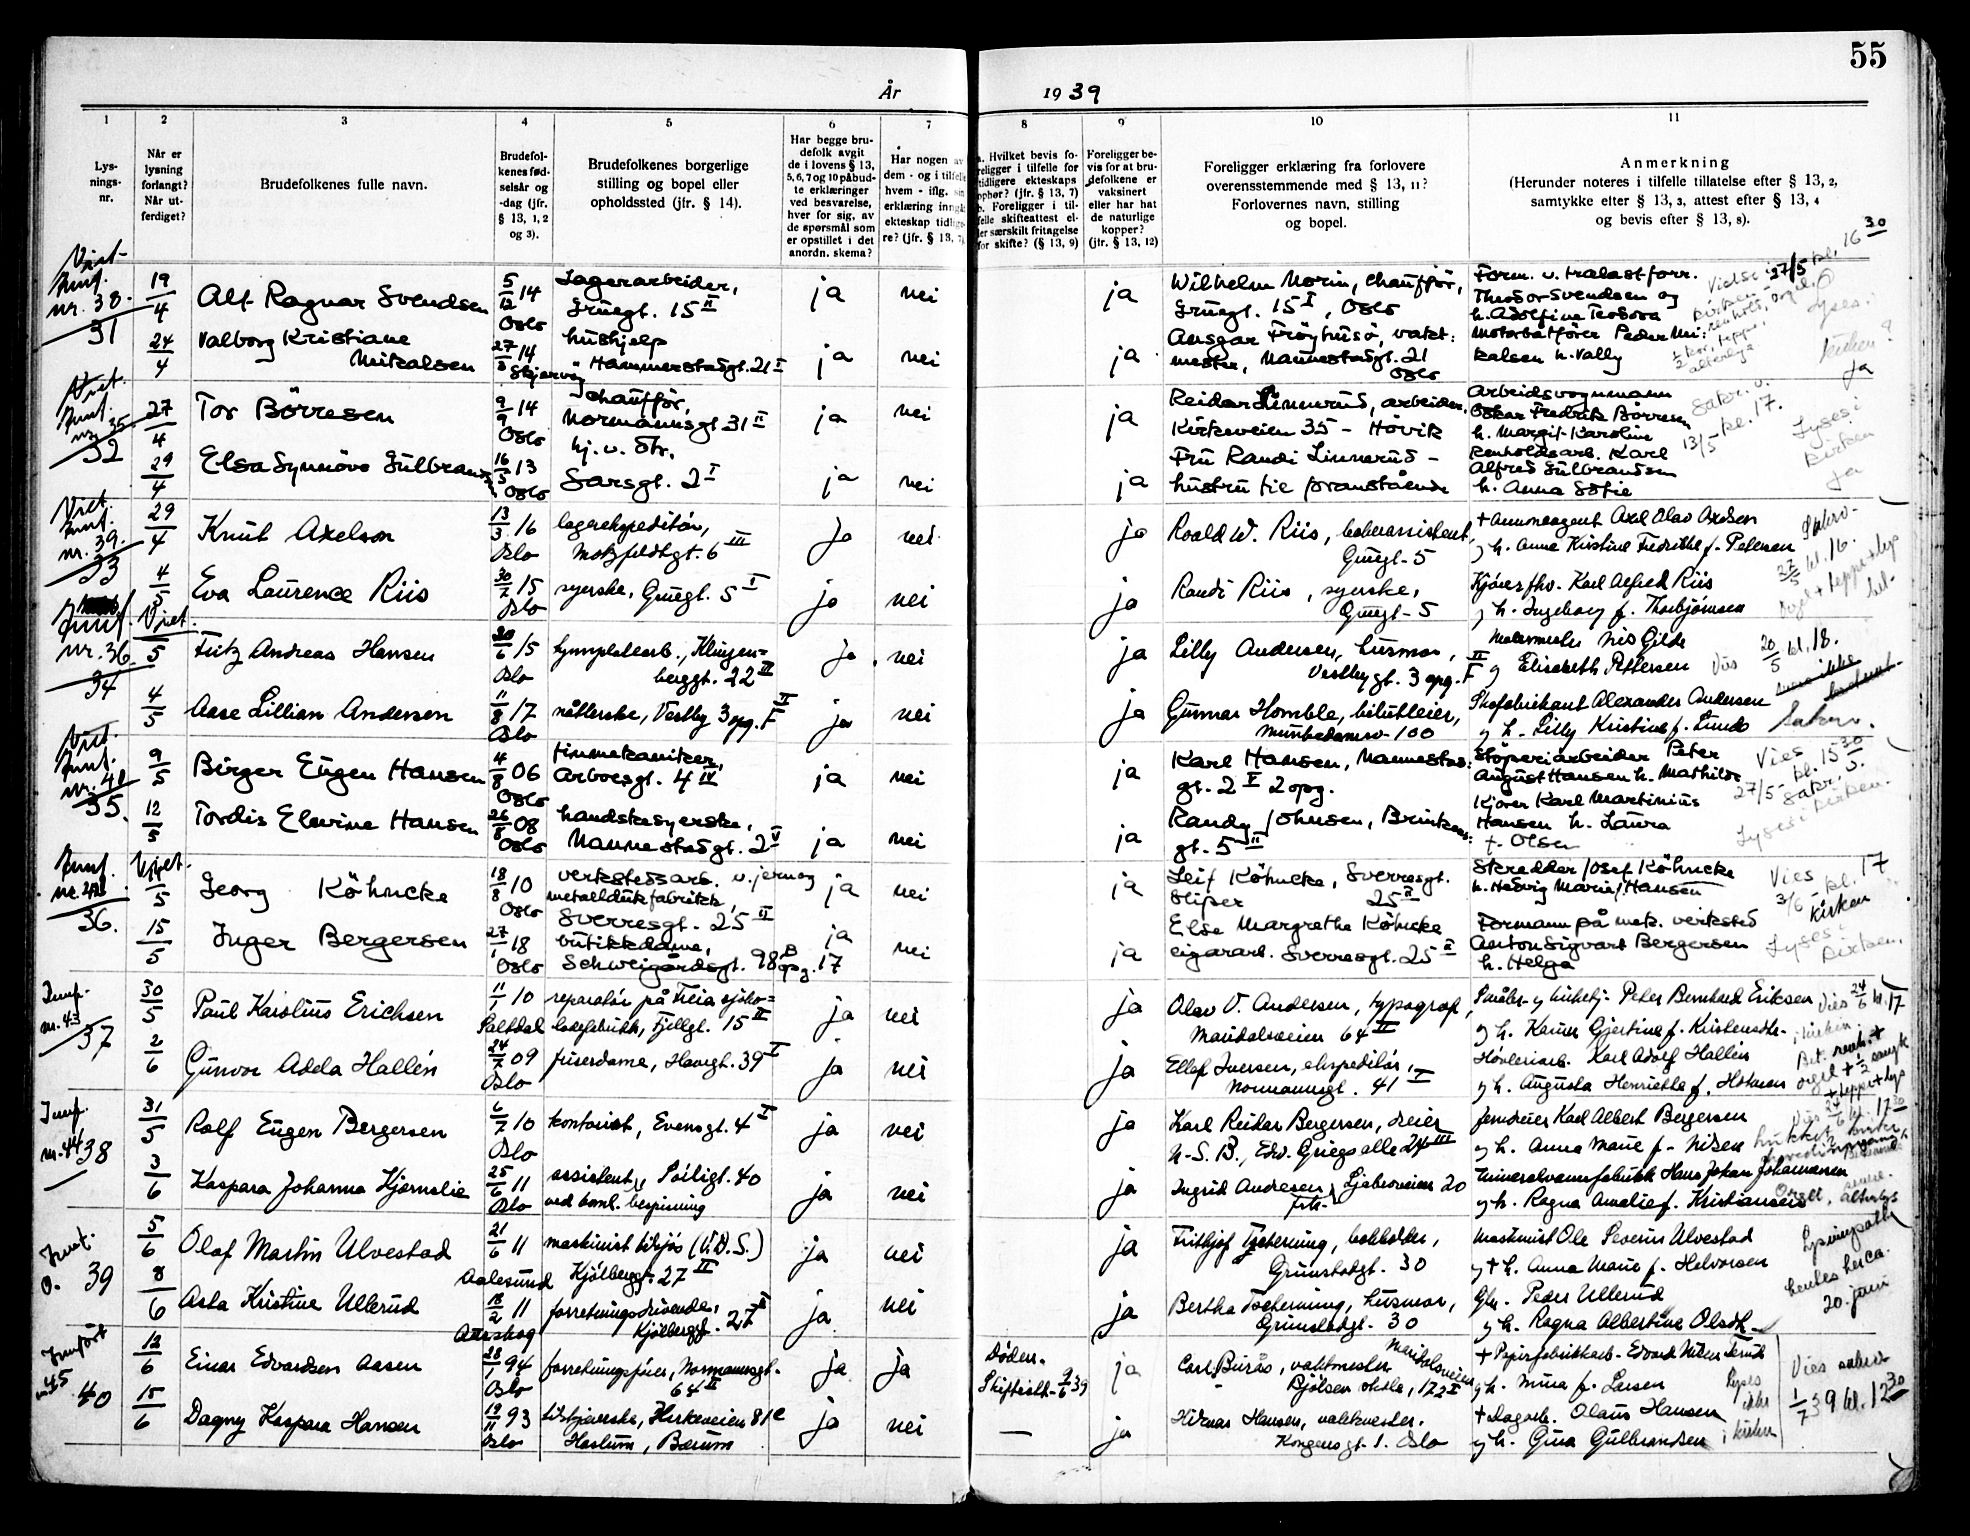 55
År 1939
1
Lys-
nings-
nr.
2
Når er
lysning
forlangt?
Når ut-
ferdiget?
3
Brudefolkenes fulle navn.
4
Brudefol-
kenes fød-
selsår og
-dag (jfr.
§ 13, 1, 2
og 3).
5
Brudefolkenes borgerlige
stilling og bopel eller
opholdssted (jfr. § 14).
6
Har begge bru-
defolk avgit
de i lovens § 13,
5, 6, 7 og 10 påbud-
te erklæringer
ved besvarelse,
hver for sig, av
de spørsmål som
er opstillet i det
anordn. skema?
7
Har nogen av
dem - og i tilfelle
hvem - iflg. sin
erklæring inngå
ekteskap tidlige-
re? (jfr. § 13, 7)
8
a. Hvilket bevis fo-
religger i tilfelle for
tidligere ekteskaps
ophør? (jfr. § 13, 7)
b. Foreligger i til-
felle skifteattest el-
ler særskilt fritagelse
for skifte? (§ 13, 9)
9
Foreligger be-
vis for at bru-
defolkene er
vaksinert
eller har hat
de naturlige
kopper?
(jfr. § 13, 12)
10
Foreligger erklæring fra forlovere
overensstemmende med § 13, 11?
Forlovernes navn, stilling
og bopel.
11
Anmerkning
(Herunder noteres i tilfelle tillatelse efter § 13, 2,
samtykke efter § 13, 3, attest efter § 13, 4
og bevis efter § 13, 8).
Viet.
nr. 38.
31
19/4
Alf Ragnar Svendsen
5/12 14
Oslo
Lagerarbeider,
Gruegt. 15 II
ja
nei
ja
Wilhelm Norin, chauffør,
Gruegt. 15 I, Oslo
Form. v. tralastforr.
Theodor Svendsen og
h. Adolfine Teodora
Vielse i 27/5 kl. 16 30
24/4
Valborg Kristiane
Mikalsen
27/8 14
Skjervøy
hushjelp
Hammerstadgt. 21 I
ja
nei
ja
Ansgar Frøyhusø, vakt:
mester, Nannestadgt. 21
Oslo
Motorbåtfører Peder Mi:
kalsen h. Vally
Lyses i
kirken?
ja
Viet.
nr. 35
32
27/4
Tor Børresen
9/9 14
Oslo
Chauffør,
Normannsgt 31 II
ja
nei
ja
Reidar Linnerud, arbeider,
Kirkeveien 35 - Høvik
Arbeidsvognmann
Oskar Fredrik Børresen
h. Margit Karoline
Sakr. v.
13/5 kl. 17.
29/4
Elsa Synnøve Gulbrandsen
16/5 13
Oslo
hj. v. str.
Sarsgt. 2 I
ja
nei
ja
Fru Randi Linnerud -
hustru til foranstående
Renholdsarb. Karl
Alfred Gulbrandsen
h. Anna Sofie
Lyses i
kirken
ja
Viet.
nr. 39.
33
29/4
Knut Axelson
13/3 16
Oslo
lagerekspeditør,
Motzfeldtgt. 6 III
ja
nei
ja
Roald W. Riis, kontorassistent,
Gruegt. 5
+ Annonseagent Axel Olav Axelsen
og h. Anna Kirstine Fredrikke f. Petersen
Sakr.
27/5 kl. 16.
4/5
Eva Laurence Riis
30/7 15
Oslo
syerske, Gruegt. 5 I
ja
nei
ja
Randi Riis, syerske,
Gruegt. 5
Kjører fhv. Karl Alfred Riis
og h. Ingeborg f. Thorbjørnsen
orgel + tepper + lys
Viet.
nr. 36.
34
5
Fritz Andreas Hansen
30/6 15
Oslo
tynnplatearb., Klingen=
berggt. 22 II
ja
nei
ja
Lilly Andersen, husmor,
Vestbygt. 3 opg. F II
Malermester Nis Gilde
og Elisabeth Pettersen
Vies 20/5 kl. 18.
4/5
Aase Lillian Andersen
11/8 17
Oslo
nåtlerske, Vestby 3 opg. F II
ja
nei
ja
Gunnar Homble, bilutleier,
Munkedamsv. 100
Skofabrikant Alexander Andersen
og h. Lilly Kristine f. Lund
Sakrv.
Viet.
nr. 41
35.
9/5
Birger Eugen Hansen
4/8 06
Oslo
finmekaniker,
Arboesgt. 4 IV
ja
nei
ja
Karl Hansen, Nannestad:
gt. 2 V 2 opg.
Støperiarbeider Peter
August Hansen h. Mathilde
Vies
27/5 kl. 15 30
sakr. v.
12/5
Tordis Elevine Hansen
26/8 08
Oslo
handskesyerske,
Nannestadgt. 2 V
ja
nei
ja
Randy Johnsen, Brinkens:
gt. 5 II
Kjører Karl Martinius
Hansen h. Laura
f. Olsen
Lyses i kirken.
nr. 42
36.
Viet.
Georg Köhncke
18/8 10
Oslo
verkstedsarb. v. jern og
metalldukfabrikk,
Sverresgt. 25 II
ja
nei
ja
Leif Köhncke, Sverresgt.
sliper 25 II
Skredder Josef Köhncke
h. Hedvig Maria Hansen
Vies
3/6 kl. 17
kirken
15/5
Inger Bergersen
27/1 18
Oslo
butikkdame,
Schweigårdsgt. 98 B opg. 17
ja
nei
ja
Else Margrethe Köhncke
sigararb. Sverresgt. 25 II
Formann på mek. verksted
Anton Sigvart Bergersen
h. Helga
Lyses i
kirken.
nr. 43
37
30/5
Paul Karolius Erichsen
11/1 10
Saltdal
reparatør på Freia sjoko=
ladefabrikk, Fjellgt. 15 II
ja
nei
ja
Olav V. Andersen, typograf,
Maridalsveien 64 II
Småbr. og hvalfj. Peter Bernhard Eriksen
og h. Karen Gjertine f. Kristensdtr.
Vies 24/6 kl. 17
i kirken.
2/6
Gunvor Adela Hallén
24/7 09
Oslo
friserdame, Haugt. 39 I
ja
nei
ja
Ellef Iversen, ekspeditør,
Normannsgt. 41 I
Høvleriarb. Karl Adolf Hallén
og h. Augusta Henriette f. Holmen
nr. 44
38
31/5
Rolf Eugen Bergersen
6/7 10
Oslo
kontorist, Evensgt. 4 I
ja
nei
ja
Karl Reidar Bergersen, elev
N.S.B., Edv. Griegs alle 24 III
Jerndreier Karl Albert Bergersen
og h. Anna Marie f. Nilsen
Vies 24/6 kl. 17 30
3/6
Kaspara Johanna Kjørnslie
25/6 11
Oslo
assistent, Soiligt. 40
ved koml. bespisning
ja
nei
ja
Ingrid Andresen, Ljabruveien 20
frk.
Mineralvannfabrikk Hans Johan Johannesen
og h. Ragna Amalie f. Kristiansen
39
5/6
Olaf Martin Ulvestad
21/6 11
Aalesund
maskinist tilsjøs (V.D.S.)
Kjølberggt. 27 II
ja
nei
ja
Frithjof Tscherning, bokholder,
Grimstadgt. 30
Maskinist Ole Severin Ulvestad
og + h. Anna Marie f. Halvorsen
Lysningsattest
hentes her ca.
20. juni
8/6
Asta Kristine Ullerud
18/2 11
Aurskog
forretningsdrivende,
Kjølberggt. 27 II
ja
nei
ja
Bertha Tscherning, husmor,
Grimstadgt. 30
Gbr. Peder Ullerud
og h. Ragna Albertine Olsdtr.
Innført
nr. 45
40
12/6
Einar Edvardsen Aasen
28/1 94
Oslo
forretningsfører, Normannsgt.
64 II
ja
ja
Døden.
Skifteatt. 9/6 39
ja
Carl Burås, vaktmester Maridalsveien
Bjølsen skole, 122 I
+ Papirfabrikkarb. Edvard Nilsen
og h. Mina f. Larsen
Lyses
ikke
i kirken
Vies sakr.
1/7 39 kl. 12 30
15/6
Dagny Kaspara Hansen
19/11 93
Oslo
Kirkeveien 81c
Haslum, Bærum
ja
nei
—
ja
Hilmar Hansen, vaktmester,
Kongensgt. 1. Oslo
+ dagarb. Olaus Hansen
og h. Gina Gulbrandsen